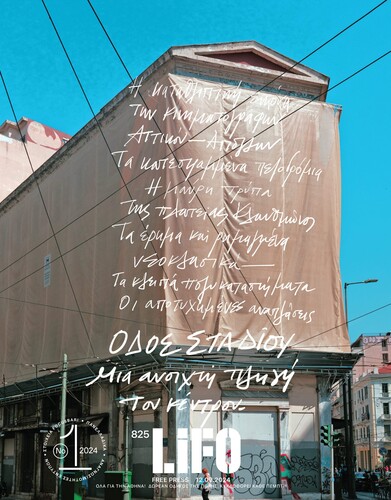 Η καταθλιπτική εικόνα
των κινηματογράφων
Αττικόν – Απόλλων
Τα κατεστραμμένα πεζοδρόμια
Η μαύρη τρύπα
της πλατείας Κλαυθμώνος
Τα έρημα και ρημαγμένα
νεοκλασικά —
Τα κλειστά πολυκαταστήματα
Οι αποτυχημένες αναπλάσεις
ΟΔΟΣ ΣΤΑΔΙΟΥ
Μια ανοιχτή πληγή
του κέντρου.
No 1 2024
825
LiFO
FREE PRESS 12.09.2024